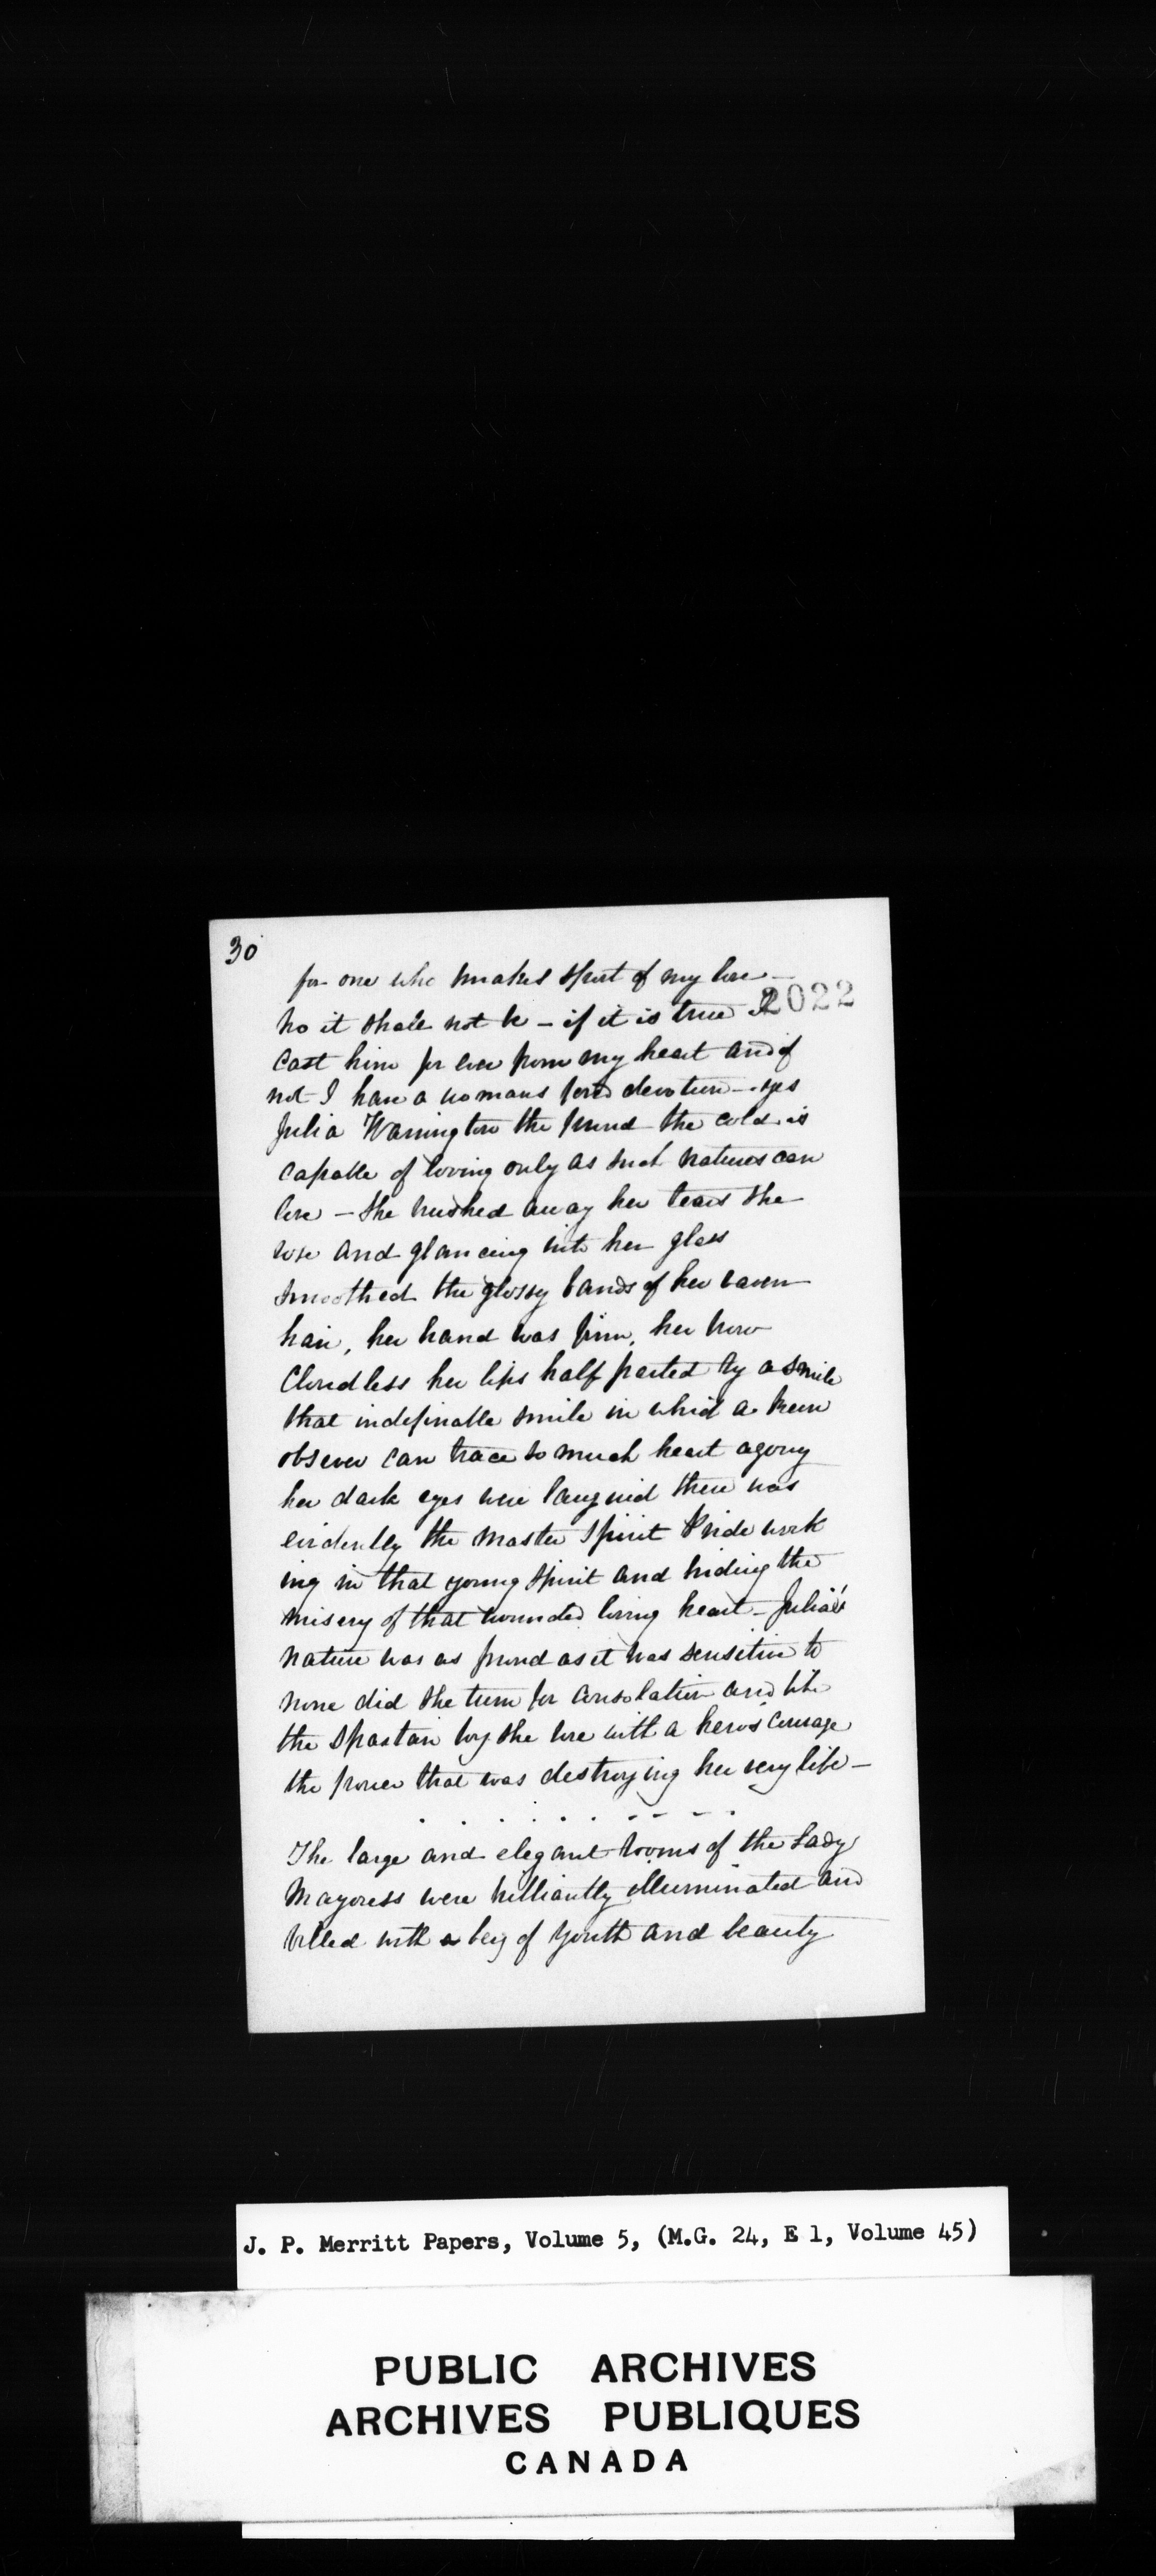 30
for one who makes sport of my love —
2022
no it shall not be – if it is true I
cast him for ever from my heart and if
not I have a womans fond devotion – yes
Julia Warrington the proud the cold is
capable of loving only as such natures can
love – she brushed away her tears she
rose and glancing into her glass
smoothed the glossy bands of her raven
hair, her hand was firm, her brow
cloudless her lips half parted by a smile
that indefinable smile in which a keen
observer can trace so much heart agony
her dark eyes were languid there was
evidently the master spirit Pride work
ing in that young spirit and hiding the
misery of that wounded loving heart – Julia's
nature was as proud as it was sensitive to
none did she turn for consolation and like
the Spartan boy she bore with a hero's courage
the power that was destroying her very life –
. . . . . – – – –
The large and elegant rooms of the Lady
Mayoress were brilliantly illuminated and
filled with a bevy of youth and beauty
J. P. Merritt Papers, Volume 5, (M.G. 24, E 1, Volume 45)
PUBLIC ARCHIVES
ARCHIVES PUBLIQUES
CANADA